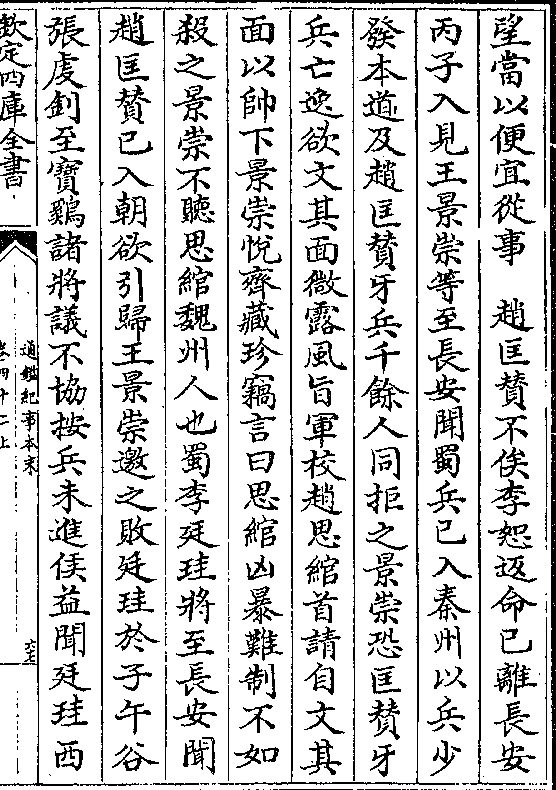 望當以便宜從事　趙匡贊不俟李恕返命已離長安
丙子入見王景崇等至長安聞蜀兵已入秦州以兵少
發本道及趙匡贊牙兵千餘人同拒之景崇恐匡贊牙
兵亡逸欲文其面微露風旨軍校趙思綰首請自文其
面以帥下景崇悅齊藏珍竊言曰思綰凶暴難制不如
殺之景崇不聽思綰魏州人也蜀李廷珪將至長安聞
趙匡贊已入朝欲引歸王景崇邀之敗廷珪於子午谷
張虔釗至寶鷄諸將議不協按兵未進侯益聞廷珪西
欽定四庫全書
通鑑紀事本末
卷四十二上